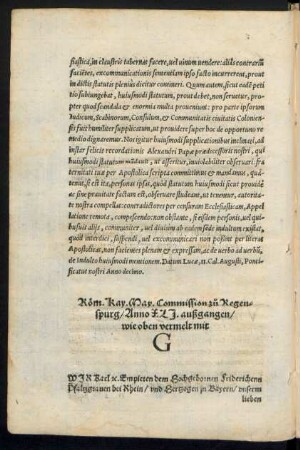 siastica, in claustris tabernas facere, uel uinum uendere: ac si contrariū
facerēt, excommunicationis sententiam ipso facto incurrerent, prout
in dictis statutis pleniùs dicitur contineri. Quum autem, sicut eadē peti
tio subiungebat, huiusmodi statutum, prout debet, non seruetur, prop-
ter quod scandala & enormia multa proueniunt: pro parte ipsorum
Iudicum, Scabinorum, Consulum, & Communitatis ciuitatis Colonien-
sis fuit humiliter supplicatum, ut prouidere super hoc de opportuno re
medio dignaremur. Nos igitur huiusmodi supplicationibus inclinati, ad
instar felicis recordationis Alexandri Papæ prædecessoris nostri,
huiusmodi statutum mādauit, ut asseritur, inuiolabiliter obseruari,
per Apostolica scripta committimus &
si est ita, personas ipsas, quòd statutum huiusmodi sicut prouidè
ac sine prauitate factum est, obseruare studeant, ut tenentur, autorita-
te nostra compellas: contradictores per censuram Ecclesiasticam, Appel
latione remota, compescendo: non obstante, si eisdem personis, uel qui-
busuis alijs, communiter, uel diuisim ab eadem sede indultum existat,
quòd interdici, suspendi, uel excommunicari non possint per literas
Apostolicas, non facientes plenam & expressam, ac de uerbo ad uerbū,
de indulto huiusmodi mentionem. Datum Lucæ, II. Cal. Augusti, Ponti-
ficatus nostri Anno decimo.
Röm. Kay. May. Commission zů Regen-
spurg / Anno XLI. außgangen /
wie oben vermelt mit
G
WIR Karl ꝛc. Empieten dem Hochgebornen Friderichenn
Pfaltzgrauen bei Rhein / vnd Hertzogen zů Bayern / vnserm
lieben